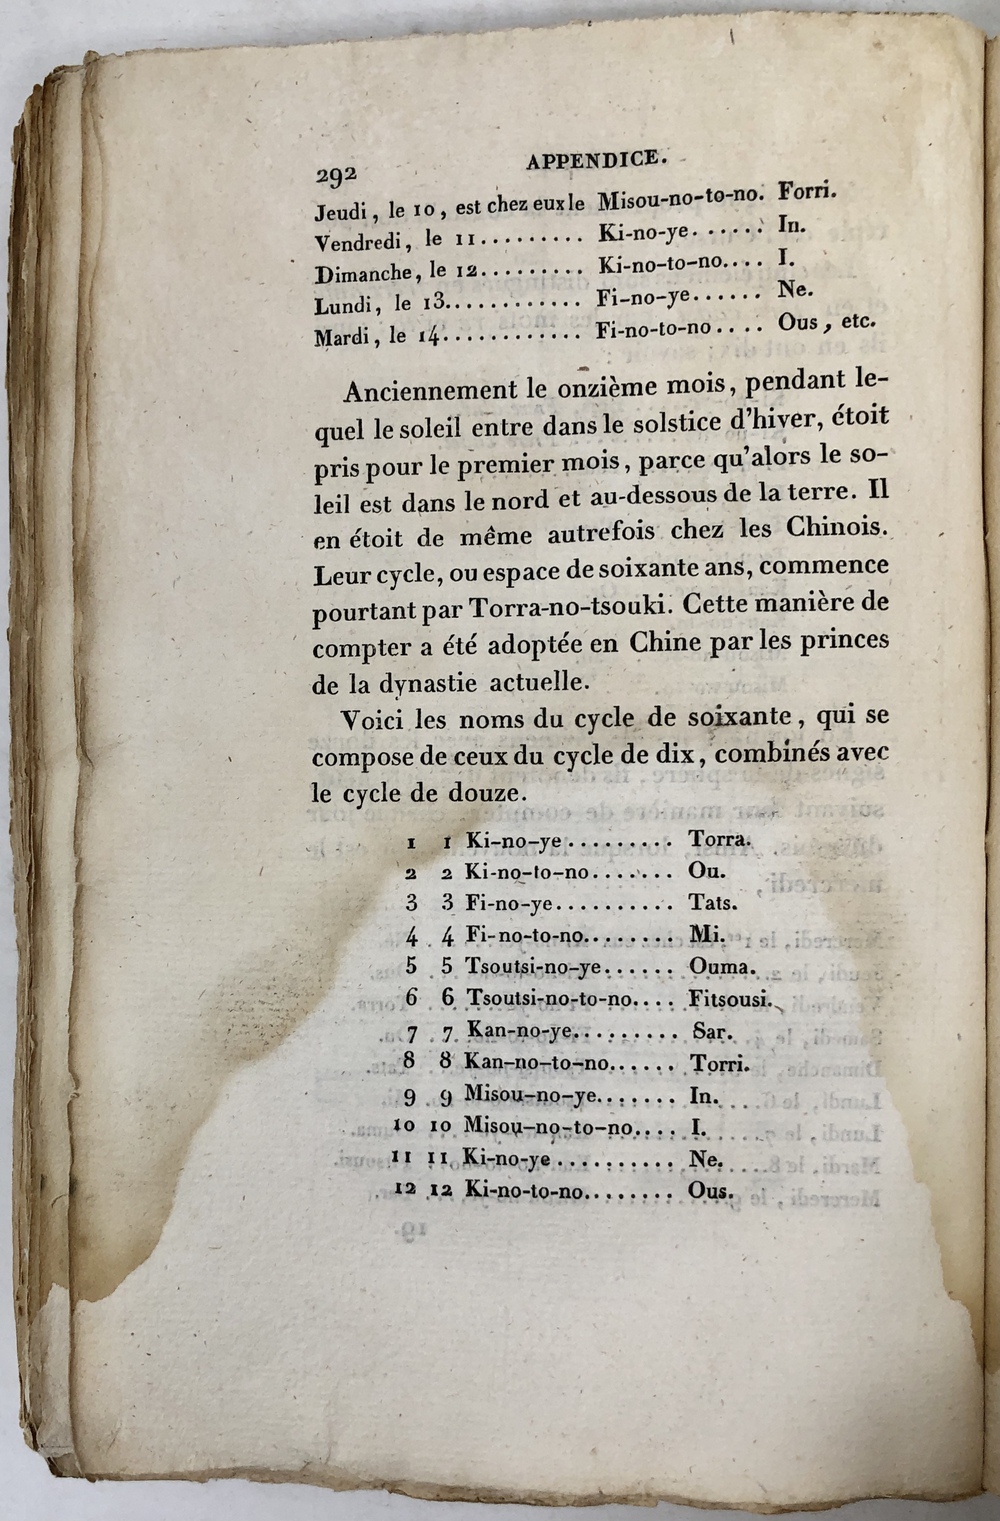 292
APPENDICE.
Jeudi, le 10, est chez eux le Misou-no-to-no. Forri.
Vendredi, le 11......... Ki-no-ye...... In.
Dimanche, le 12......... Ki-no-to-no.... I.
Lundi, le 13............ Fi-no-ye...... Ne.
Mardi, le 14............ Fi-no-to-no.... Ous, etc.
Anciennement le onzième mois, pendant le-
quel le soleil entre dans le solstice d'hiver, étoit
pris pour le premier mois, parce qu'alors le so-
leil est dans le nord et au-dessous de la terre. Il
en étoit de même autrefois chez les Chinois.
Leur cycle, ou espace de soixante ans, commence
pourtant par Torra-no-tsouki. Cette manière de
compter a été adoptée en Chine par les princes
de la dynastie actuelle.
Voici les noms du cycle de soixante, qui se
compose de ceux du cycle de dix, combinés avec
le cycle de douze.
1 1 Ki-no-ye......... Torra.
2 2 Ki-no-to-no....... Ou.
3 3 Fi-no-ye.......... Tats.
4 4 Fi-no-to-no........ Mi.
5 5 Tsoutsi-no-ye...... Ouma.
6 6 Tsoutsi-no-to-no.... Fitsousi.
7 7 Kan-no-ye......... Sar.
8 8 Kan-no-to-no...... Torri.
9 9 Misou-no-ye....... In.
10 10 Misou-no-to-no.... I.
11 11 Ki-no-ye.......... Ne.
12 12 Ki-no-to-no........ Ous.